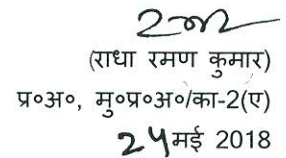 (राधा रमण कुमार)
प्र०अ०, मु०प्र०अ०/का-2(ए)
24 मई 2018